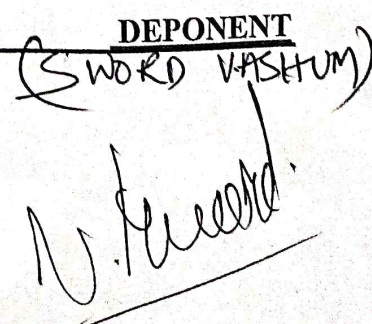 DEPONENT
(SWORD VASHUM)